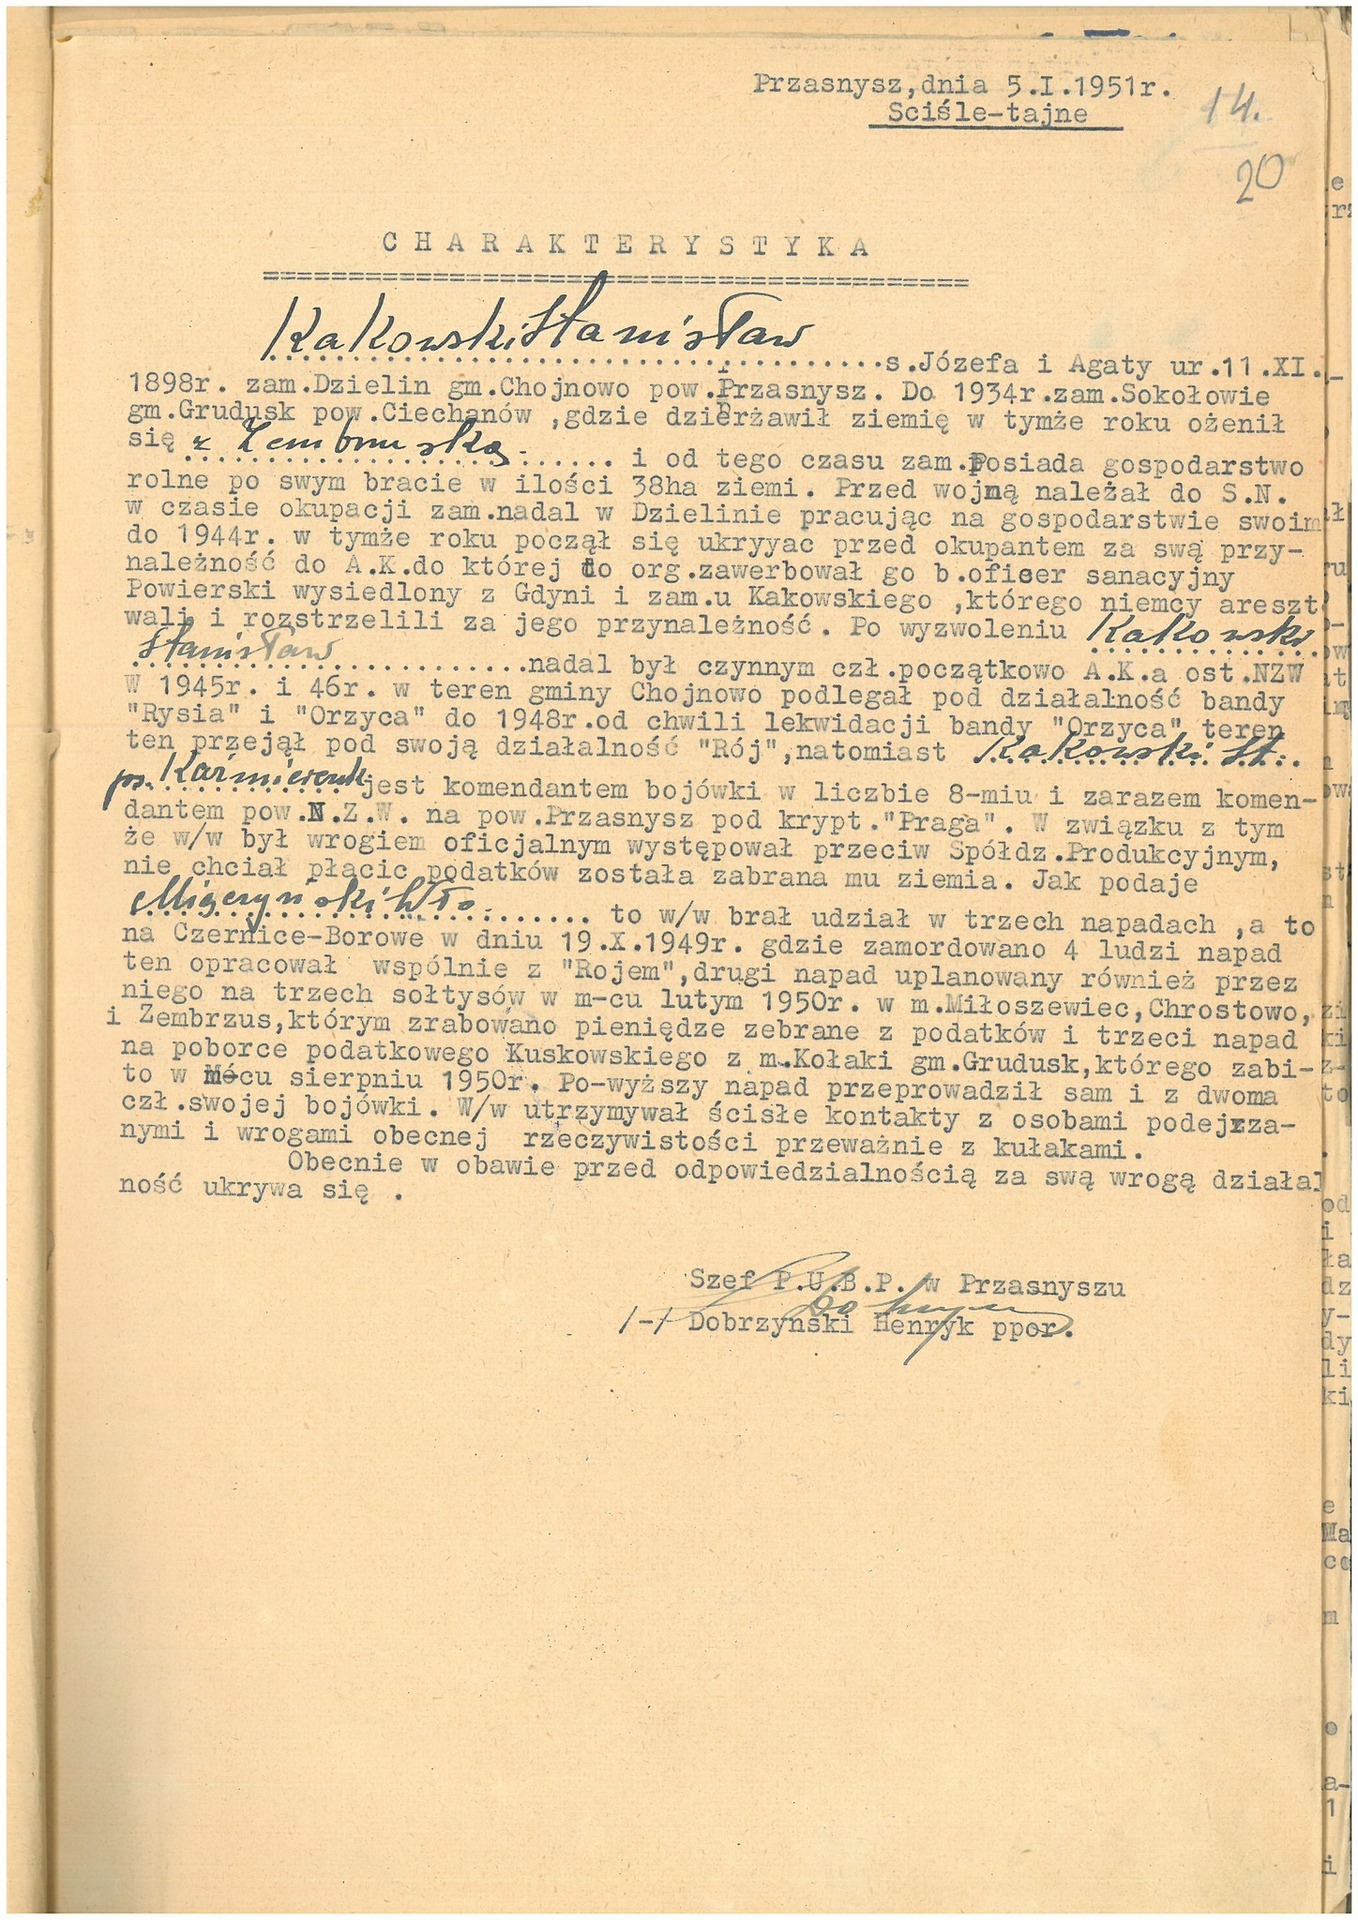 Przasnysz,dnia 5.I.1951r.
Sciśle-tajne
14.
20
CHARAKTERYSTYKA
=====================================
Kakowski Stanisław
....................................s.Józefa i Agaty ur.11.XI.
1898r. zam.Dzielin gm.Chojnowo pow.Przasnysz. Do 1934r.zam.Sokołowie
gm.Grudusk pow.Ciechanów ,gdzie dzierżawił ziemię w tymże roku ożenił
się z ...................... i od tego czasu zam.Posiada gospodarstwo
rolne po swym bracie w ilości 38ha ziemi. Przed wojną należał do S.N.
w czasie okupacji zam.nadal w Dzielinie pracując na gospodarstwie swoim
do 1944r. w tymże roku począł się ukryyac przed okupantem za swą przy-
należność do A.K.do której do org.zawerbował go b.oficer sanacyjny
Powierski wysiedlony z Gdyni i zam.u Kakowskiego ,którego niemcy areszt
wali i rozstrzelili za jego przynależność. Po wyzwoleniu Kakowski
Stanisław
.......................nadal był czynnym czł.początkowo A.K.a ost.NZW
W 1945r. i 46r. w teren gminy Chojnowo podlegał pod działalność bandy
"Rysia" i "Orzyca" do 1948r.od chwili lekwidacji bandy "Orzyca" teren
ten przejął pod swoją działalność "Rój",natomiast Kakowski St.
ps. Kaźmierczuk jest komendantem bojówki w liczbie 8-miu i zarazem komen-
dantem pow.N.Z.W. na pow.Przasnysz pod krypt."Praga". W związku z tym
że w/w był wrogiem oficjalnym występował przeciw Spółdz.Produkcyjnym,
nie chciał płacic podatków została zabrana mu ziemia. Jak podaje
........................... to w/w brał udział w trzech napadach ,a to
na Czernice-Borowe w dniu 19.X.1949r. gdzie zamordowano 4 ludzi napad
ten opracował wspólnie z "Rojem",drugi napad uplanowany również przez
niego na trzech sołtysów w m-cu lutym 1950r. w m.Miłoszewiec,Chrostowo,
i Zembrzus,którym zrabowano pieniędze zebrane z podatków i trzeci napad
na poborce podatkowego Kuskowskiego z m.Kołaki gm.Grudusk,którego zabi-
to w m-cu sierpniu 1950r. Po-wyższy napad przeprowadził sam i z dwoma
czł.swojej bojówki. W/w utrzymywał ścisłe kontakty z osobami podejrza-
nymi i wrogami obecnej rzeczywistości przeważnie z kułakami.
Obecnie w obawie przed odpowiedzialnością za swą wrogą działal
ność ukrywa się .
Szef P.U.B.P. w Przasnyszu
/-/ Dobrzyński Henryk ppor.